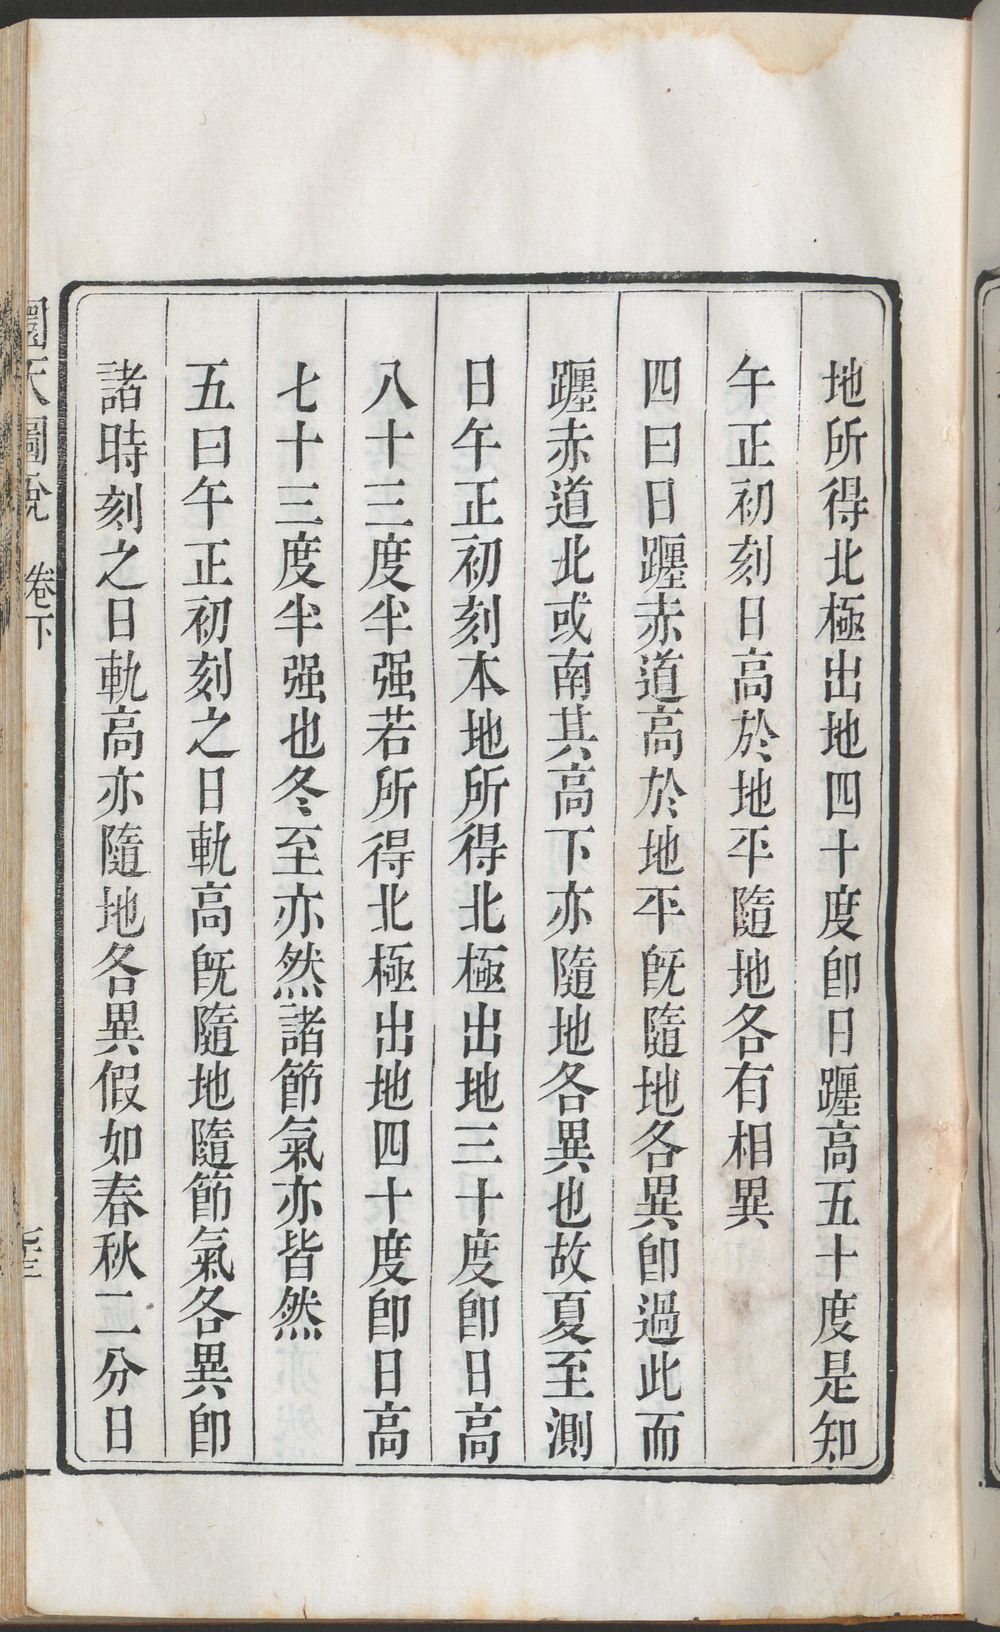 地所得北極出地四十度卽日躔高五十度是知
午正初刻日高於地平隨地各有相異
四曰日躔赤道高於地平旣隨地各異卽過此而
躔赤道北或南其高下亦隨地各異也故夏至測
日午正初刻本地所得北極出地三十度卽日高
八十三度半强若所得北極出地四十度卽日高
七十三度半强也冬至亦然諸節氣亦皆然
五曰午正初刻之日軌高旣隨地隨節氣各異卽
諸時刻之日軌高亦隨地各異假如春秋二分日
圜天圖說 卷下